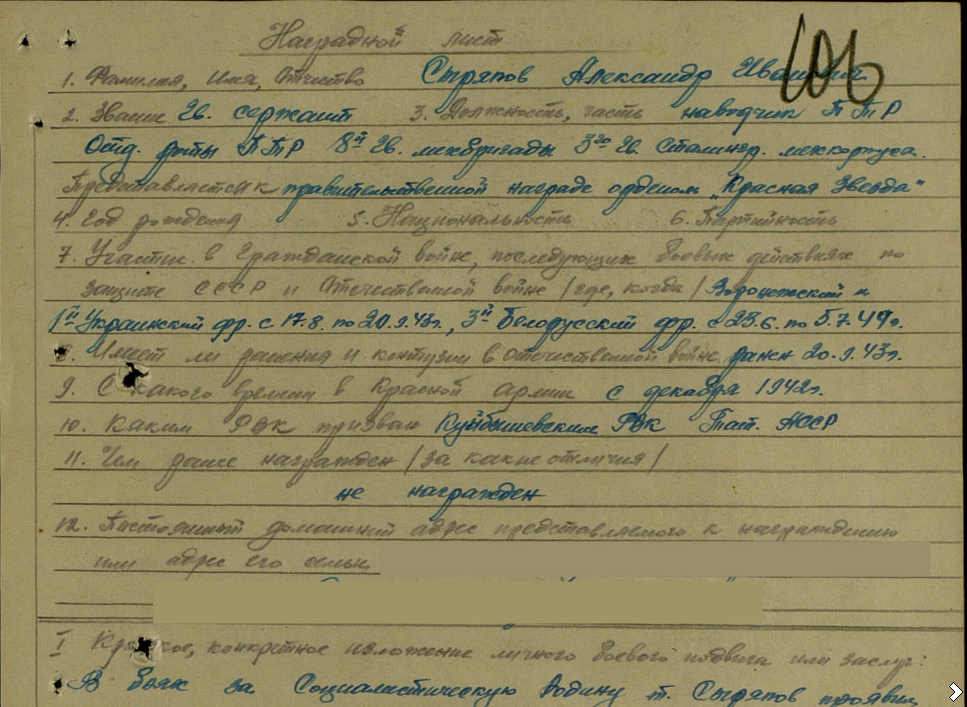 Наградной лист
106
1. Фамилия, Имя, Отчество Сыряпов Александр Иванович
2. Звание Гв. сержант 3. Должность, часть наводчик ПТР
Отд. роты ПТР 8й Гв. мехбригады 3го Гв. Сталингр. мехкорпуса.
Представляется к правительственной награде орденом „Красная Звезда“
4. Год рождения 5. Национальность 6. Партийность
7. Участие в Гражданской войне, последующих боевых действиях по
защите СССР и Отечественной войне /где, когда/ Воронежский и
1й Украинский фр. с 17.8. по 20.9.43г., 3й Белорусский фр. с 23.6. по 5.7.44г.
8. Имеет ли ранения и контузии в отечественной войне ранен 20.9.43г.
9. С какого времени в Красной армии с декабря 1942г.
10. Каким РВК призван Куйбышевским РВК Тат. АССР
11. Чем ранее награжден /за какие отличия/
не награжден
12. Постоянный домашний адрес представляемого к награждению
или адрес его семьи
I Краткое, конкретное изложение личного боевого подвига или заслуг:
В боях за Социалистическую Родину т. Сыряпов проявил